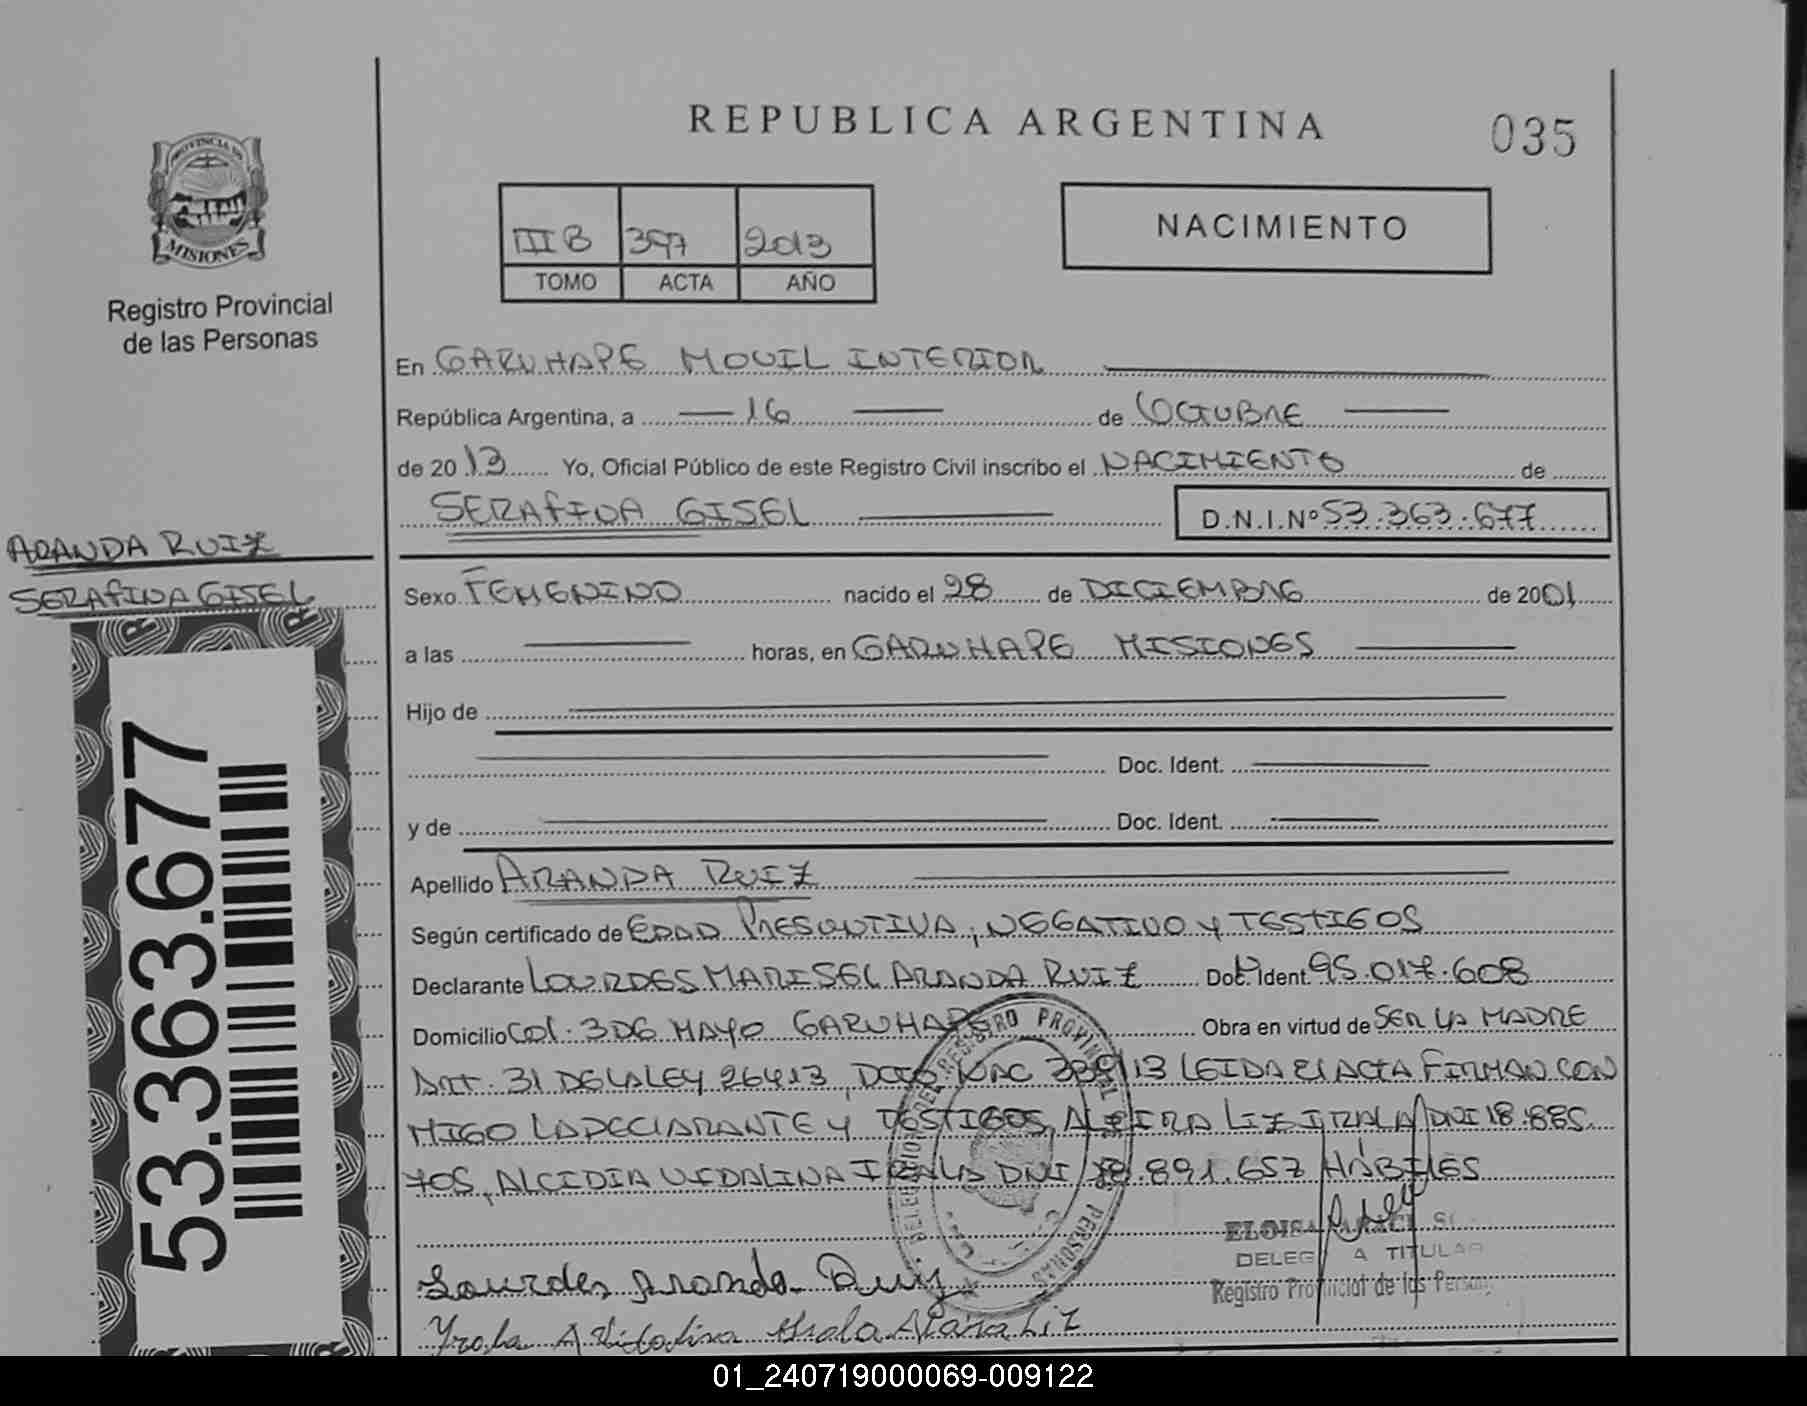 REPUBLICA ARGENTINA
035
PROVINCIA DE
MISIONES
Registro Provincial
de las Personas
III B 397 2013
TOMO ACTA AÑO
NACIMIENTO
En GARUHAPE MOVIL INTERIOR
República Argentina, a 16 de OCTUBRE
de 2013 Yo, Oficial Público de este Registro Civil inscribo el NACIMIENTO de
SERAFINA GISEL
D.N.I.Nº 53.363.677
ARANDA RUIZ
SERAFINA GISEL
53.363.677
Sexo FEMENINO nacido el 28 de DICIEMBRE de 2001
a las horas, en GARUHAPE MISIONES
Hijo de
Doc. Ident.
y de Doc. Ident.
Apellido ARANDA RUIZ
Según certificado de EDAD PRESUNTIVA, NEGATIVO Y TESTIGOS
Declarante LOURDES MARISEL ARANDA RUIZ Doc. Ident. 95.017.608
Domicilio COL: 3 DE MAYO GARUHAPE Obra en virtud de SER LA MADRE
ART. 31 DE LA LEY 26413, NAC 339/13 LEIDA EL ACTA FIRMAN CON
MIGO LA DECLARANTE Y TESTIGOS, ALZIRA LIZ IRALA DNI 18.885.
705, ALCIDIA VIDALINA IRALA DNI 18.891.657 HÁBILES
ELOISA
DELEG A TITULAR
Registro Provincial de las Person
Lourdes Aranda Ruiz
01_240719000069-009122